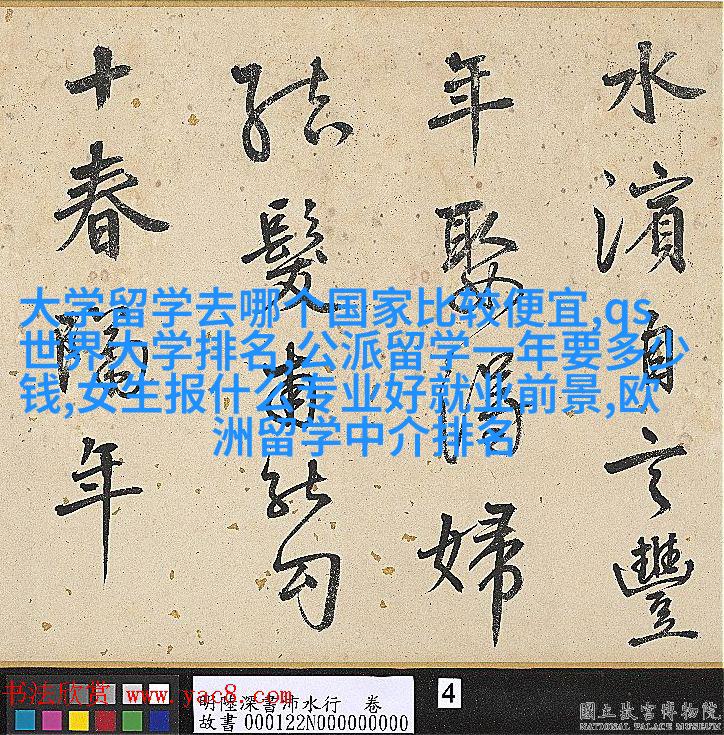 水濱自言豐
年娶得婦
結髮能勾
十春年
大学留学去哪个国家比较便宜,qs
世界大学排名,公派留学一年要多少
钱,女生报什么专业好就业前景,欧
洲留学中介排名
书法欣赏 www.yac8.com
明陸深書沛水行　卷
故書 000122N000000000
4
國立故宮博物院
NATIONAL PALACE MUSEUM